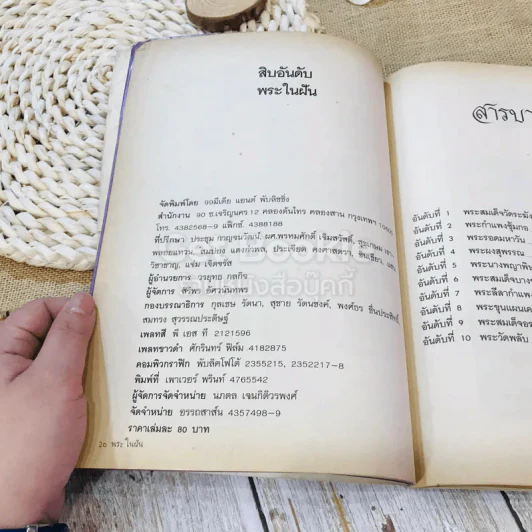 สิบอันดับ
พระในฝัน
จัดพิมพ์โดย จิมีเดีย แอนด์ พับลิชชิ่ง
สำนักงาน 90 ซ.เจริญนคร 12 คลองต้นไทร คลองสาน กรุงเทพฯ
โทร. 4382568-9 แฟ็กซ์.
ที่ปรึกษา ประชุม กาญจนวัฒน์, ผศ.พรหมศักดิ์ เจิมสวัสดิ์,
วิชาชาญ, แจ่ม เจ็ดจรัส
ผู้อำนวยการ วรยุทธ กลกิจ
ผู้จัดการ
กองบรรณาธิการ กุลเชษ รัตนา, สุชาย รัตนชงค์, พงศ์กร
สมทรง สุวรรณประดิษฐ์
เพลทสี พี เอส ที 2121596
เพลทขาวดำ ศักรินทร์ ฟิล์ม 4182875
คอมพิวกราฟิก พับลิคโฟโต้ 2355215, 2352217-8
พิมพ์ที่ เพาเวอร์ พรินท์ 4765542
ผู้จัดการจัดจำหน่าย นภดล เจนกิติวรพงศ์
จัดจำหน่าย อรรถสาส์น 4357498-9
ราคาเล่มละ 80 บาท
26 พระ ในฝัน
สารบ
อันดับที่ 1 พระสมเด็จวัดระฆัง
อันดับที่ 2 พระกำแพงซุ้มกอ
อันดับที่ 3 พระรอดมหาวัน
อันดับที่ 4 พระผงสุพรรณ
อันดับที่ 5 พระนางพญาพิษ
อันดับที่ 6 พระสมเด็จบาง
อันดับที่ 7 พระลีลากำแพง
อันดับที่ 8 พระขุนแผนเค
อันดับที่ 9 พระสมเด็จอร
อันดับที่ 10 พระวัดพลับ